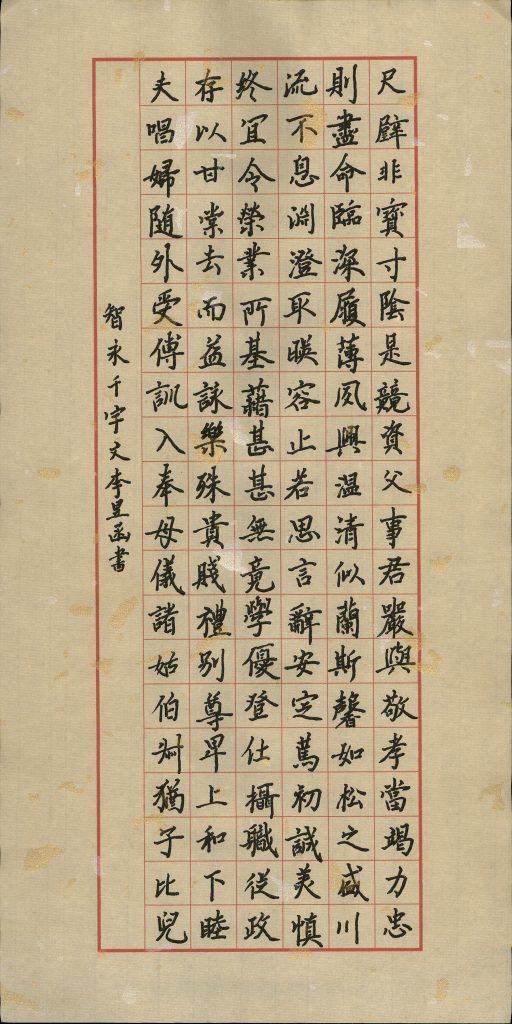 尺璧非寶寸陰是競資父事君嚴與敬孝當竭力忠
則盡命臨深履薄夙興温清似蘭斯馨如松之盛川
流不息淵澄取暎容止若思言辭安定篤初誠美慎
終宜令榮業所基藉甚甚無竟學優登仕攝職從政
存以甘棠去而益詠樂殊貴賤禮別尊卑上和下睦
夫唱婦随外受傅訓入奉母儀諸姑伯叔猶子比兒
智永千字文李昱函書